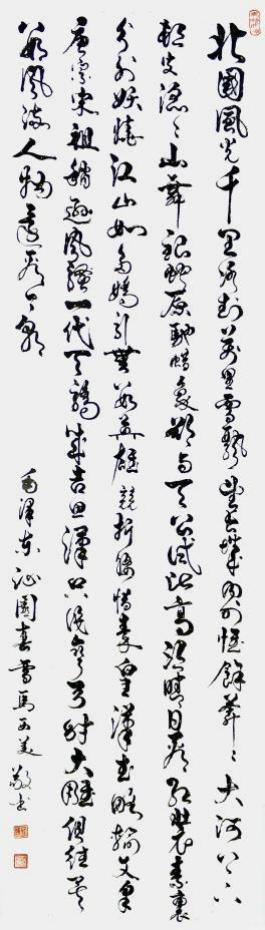 北國風光千里冰封萬里雪飄望長城內外惟餘莽〻大河上下
頓失滔〻山舞銀蛇原馳蠟象欲與天公試比高須晴日看紅裝素裹
分外妖嬈江山如此多嬌引無數英雄競折腰惜秦皇漢武略輸文采
唐宗宋祖稍遜風騷一代天驕成吉思漢只識彎弓射大雕俱往矣
數風流人物還看今朝
毛澤東沁園春雪馬美敬書